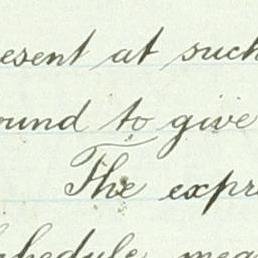 esent at such
ound to give
The expre
chedule mea